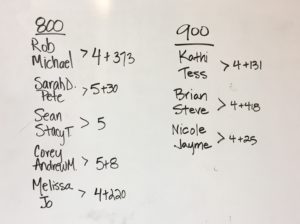 800
Rob
Michael > 4+373
Sarah D.
Pete > 5+30
Sean
Stacy T. > 5
Corey
Andrew M. > 5+8
Melissa
Jo > 4+220
900
Kathi
Tess > 4+131
Brian
Steve > 4+418
Nicole
Jayme > 4+25